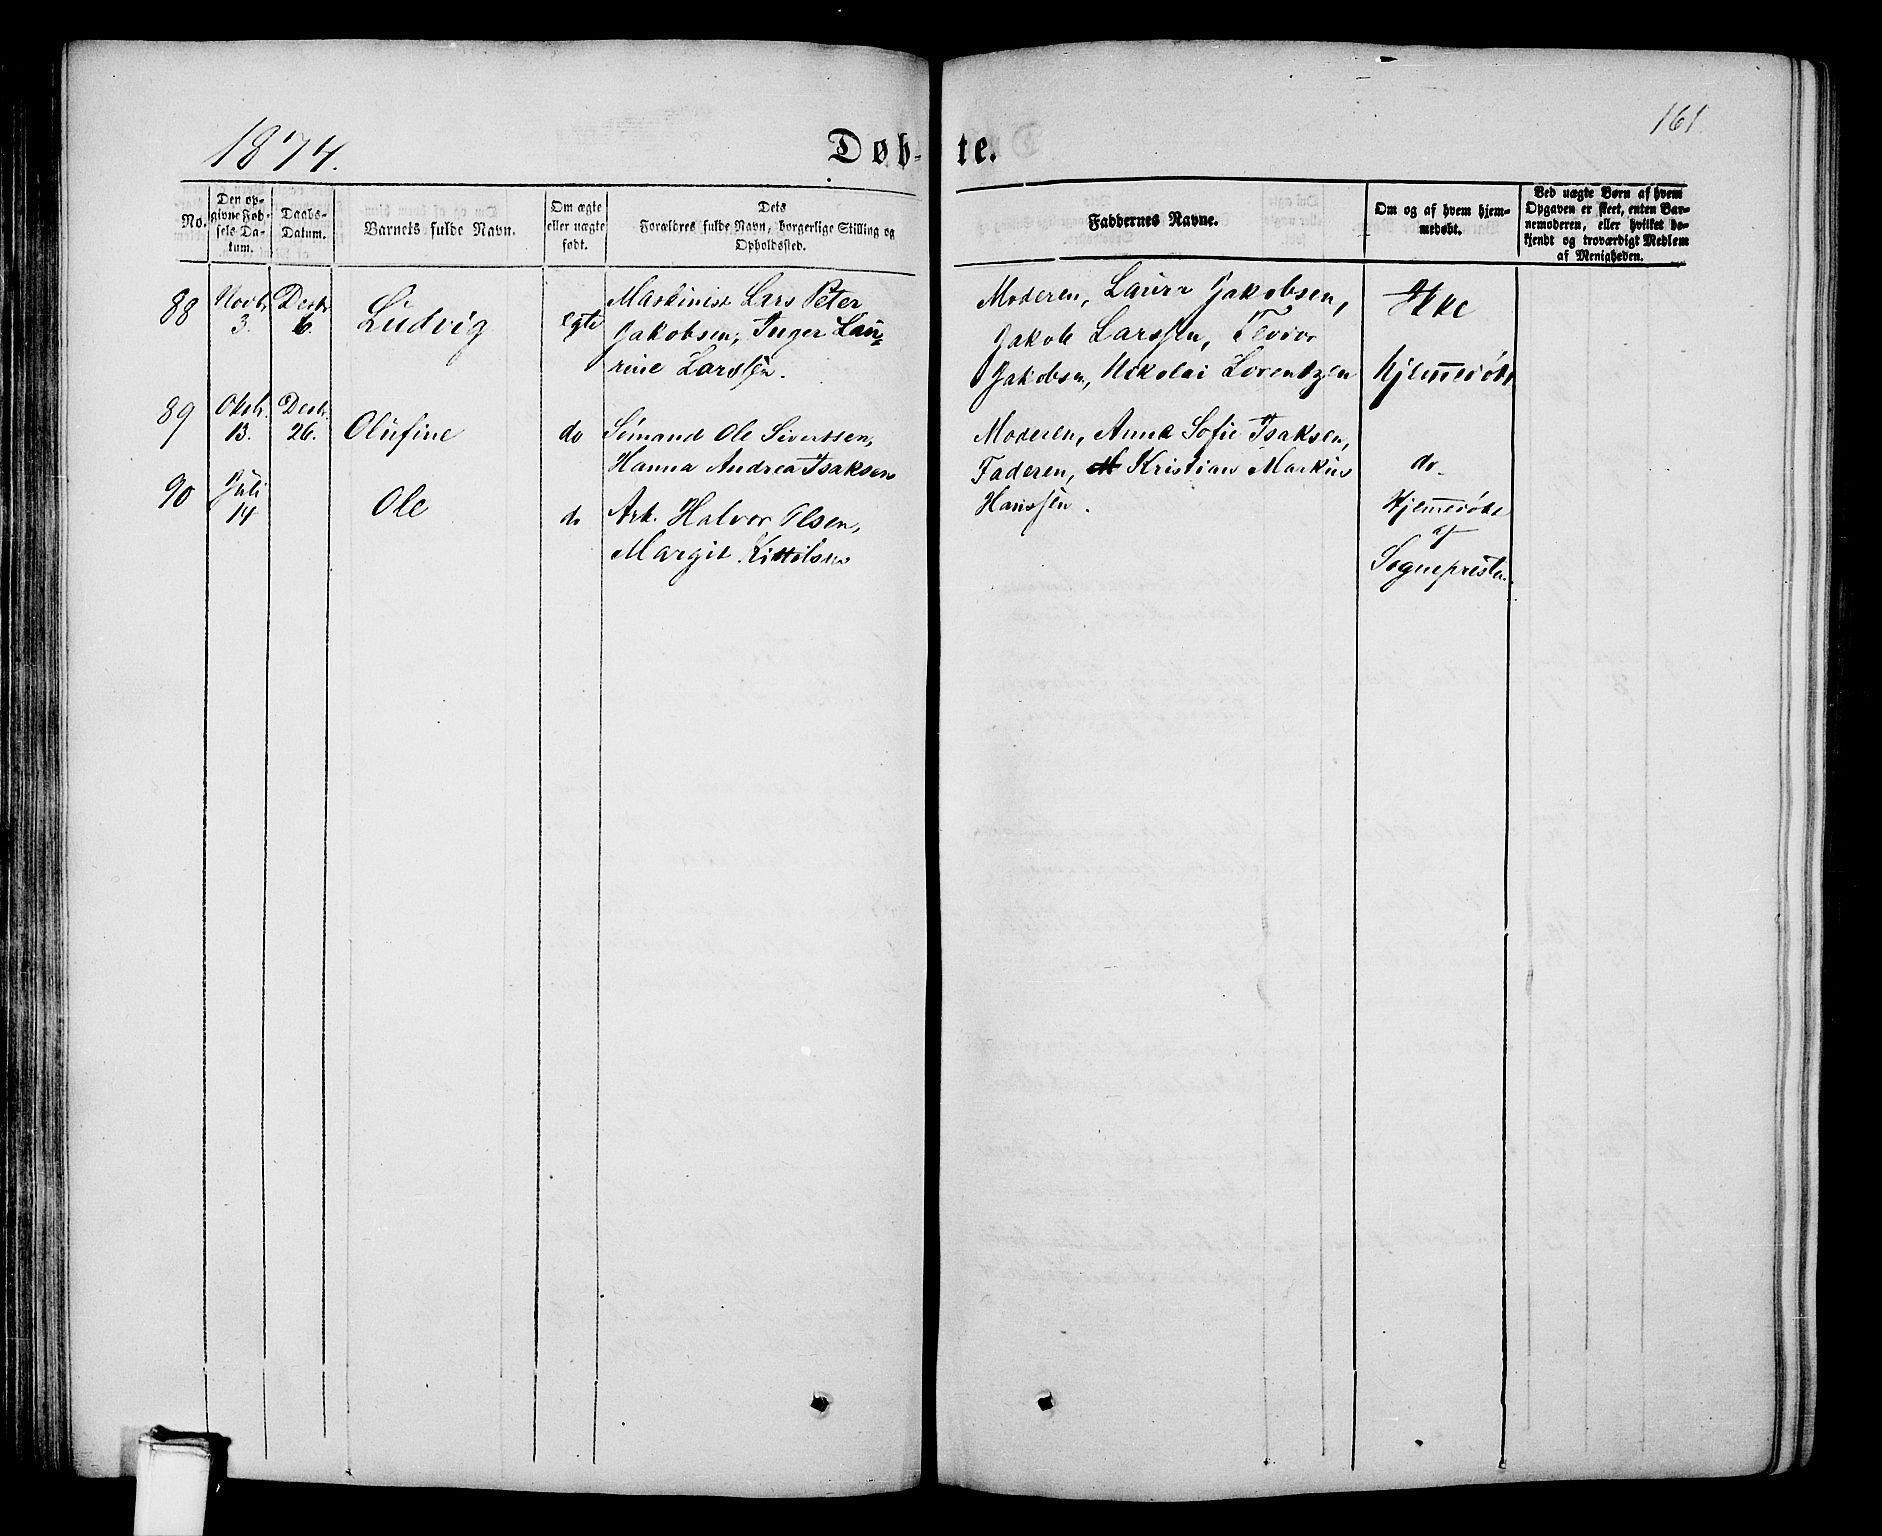 1874.
161.
Døb-
te.
No.
Den op-
givne Fød-
sels Da-
tum.
Daabs-
Datum.
Barnets fulde Navn.
Om ægte
eller uægte
født.
Dets
Forældres fulde Navn, borgerlige Stilling og
Opholdssted.
Faddernes Navne.
Om og af hvem hjem-
medøbt.
Ved uægte Børn af hvem
Opgaven er skeet, enten Bar-
nemoderen, eller hvilket be-
kjendt og troværdigt Medlem
af Menigheden.
88
Novbr
3.
Decbr
6.
Ludvig
egte
Maskinist Lars Peter
Jakobsen, Inger Lau-
rine Larssen.
Moderen, Laura Jakobsen,
Jakob Larssen,
Jakobsen, Nikolai Lorentzen
Ikke
Hjemmedøbt
89
Oktb.
13.
Decbr.
26.
Olufine
do
Sømand Ole Sivertsen,
Hanna Andrea Isaksen
Moderen, Anna Sofie Isaksen,
Faderen, Kristian Markus
Hanssen.
do
90
Juli
14
Ole
do
Arb. Halvor Olsen,
Margit Kittilsen
Hjemmedøbt
af
Sognepresten